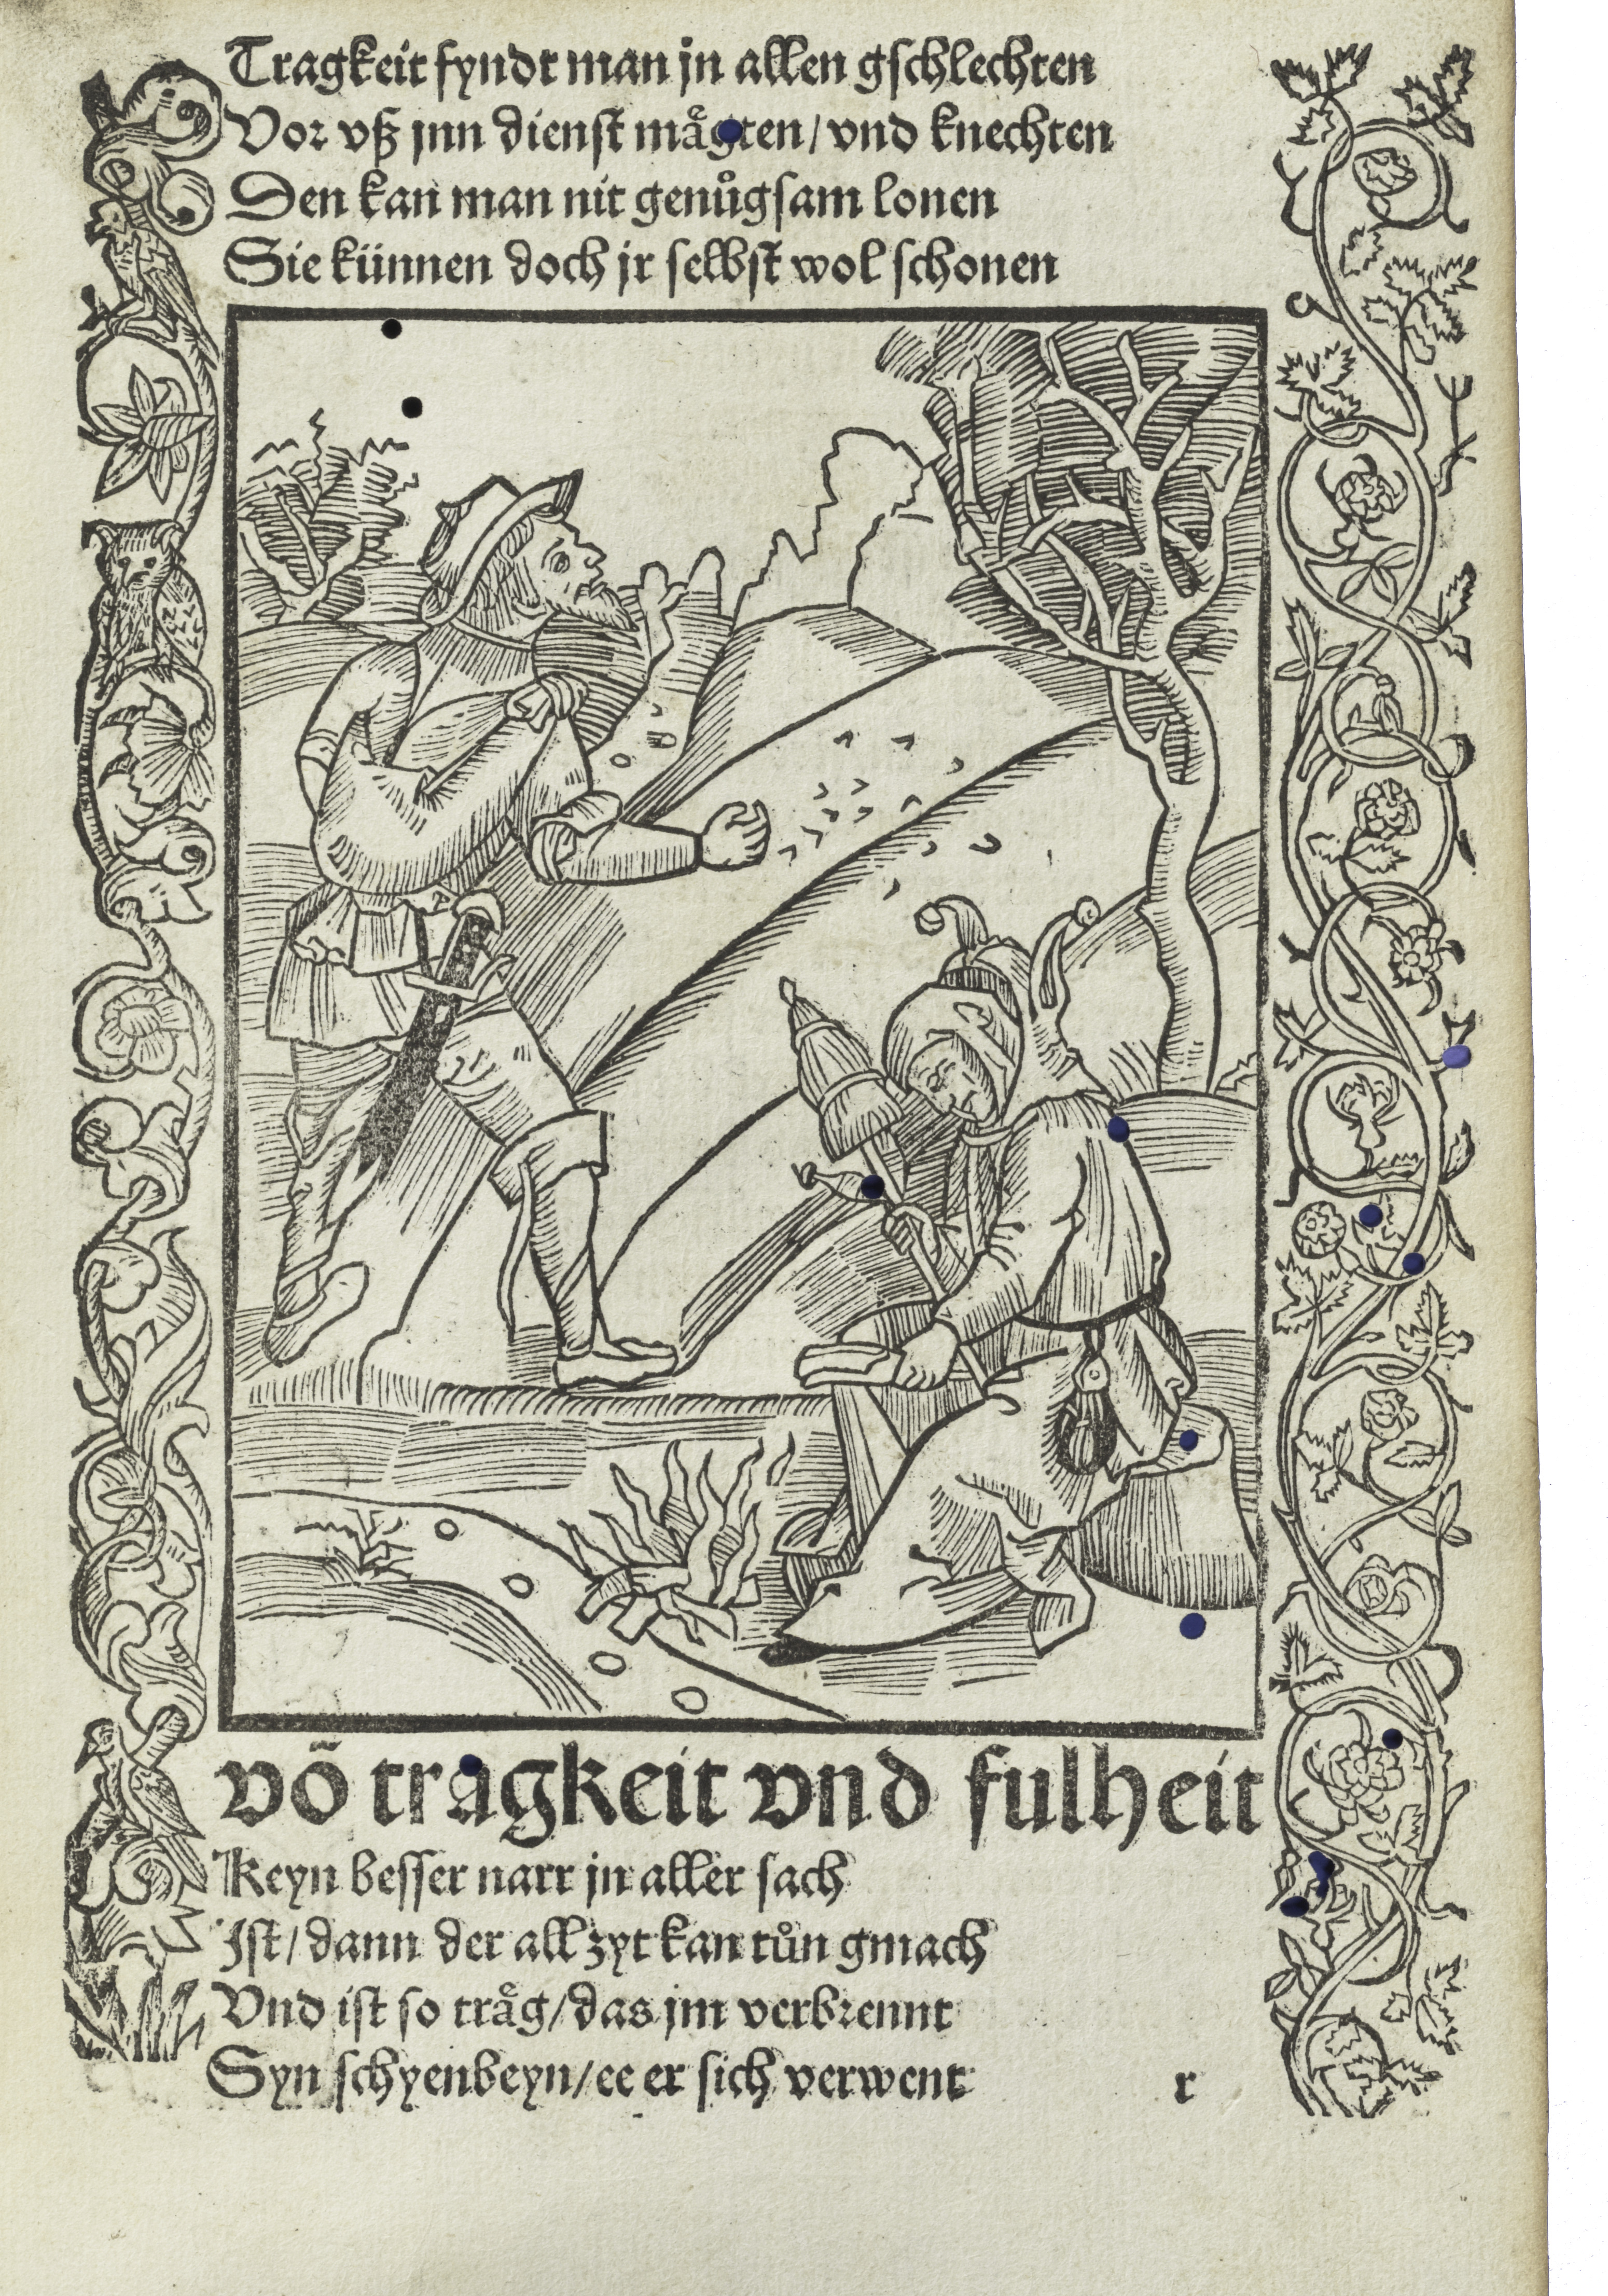 Tragkeit fyndt man jn allen gschlechten
Vor vß jnn dienst mågten / vnd knechten
Den kan man nit genůgsam lonen
Sie künnen doch jr selbst wol schonen
võ tragkeit vnd fulheit
Keyn besser narr jn aller sach
Ist / dann der all zyt kan tůn gmach
Vnd ist so tråg / das jm verbrennt
Syn schyenbeyn / ee er sich verwent
r